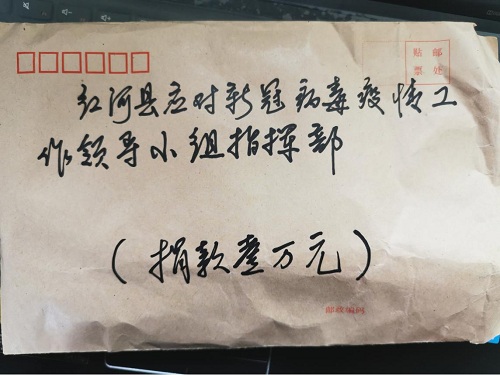 贴 邮
票 处
红河县应对新冠病毒疫情工
作领导小组指挥部
(捐款壹万元)
邮政编码